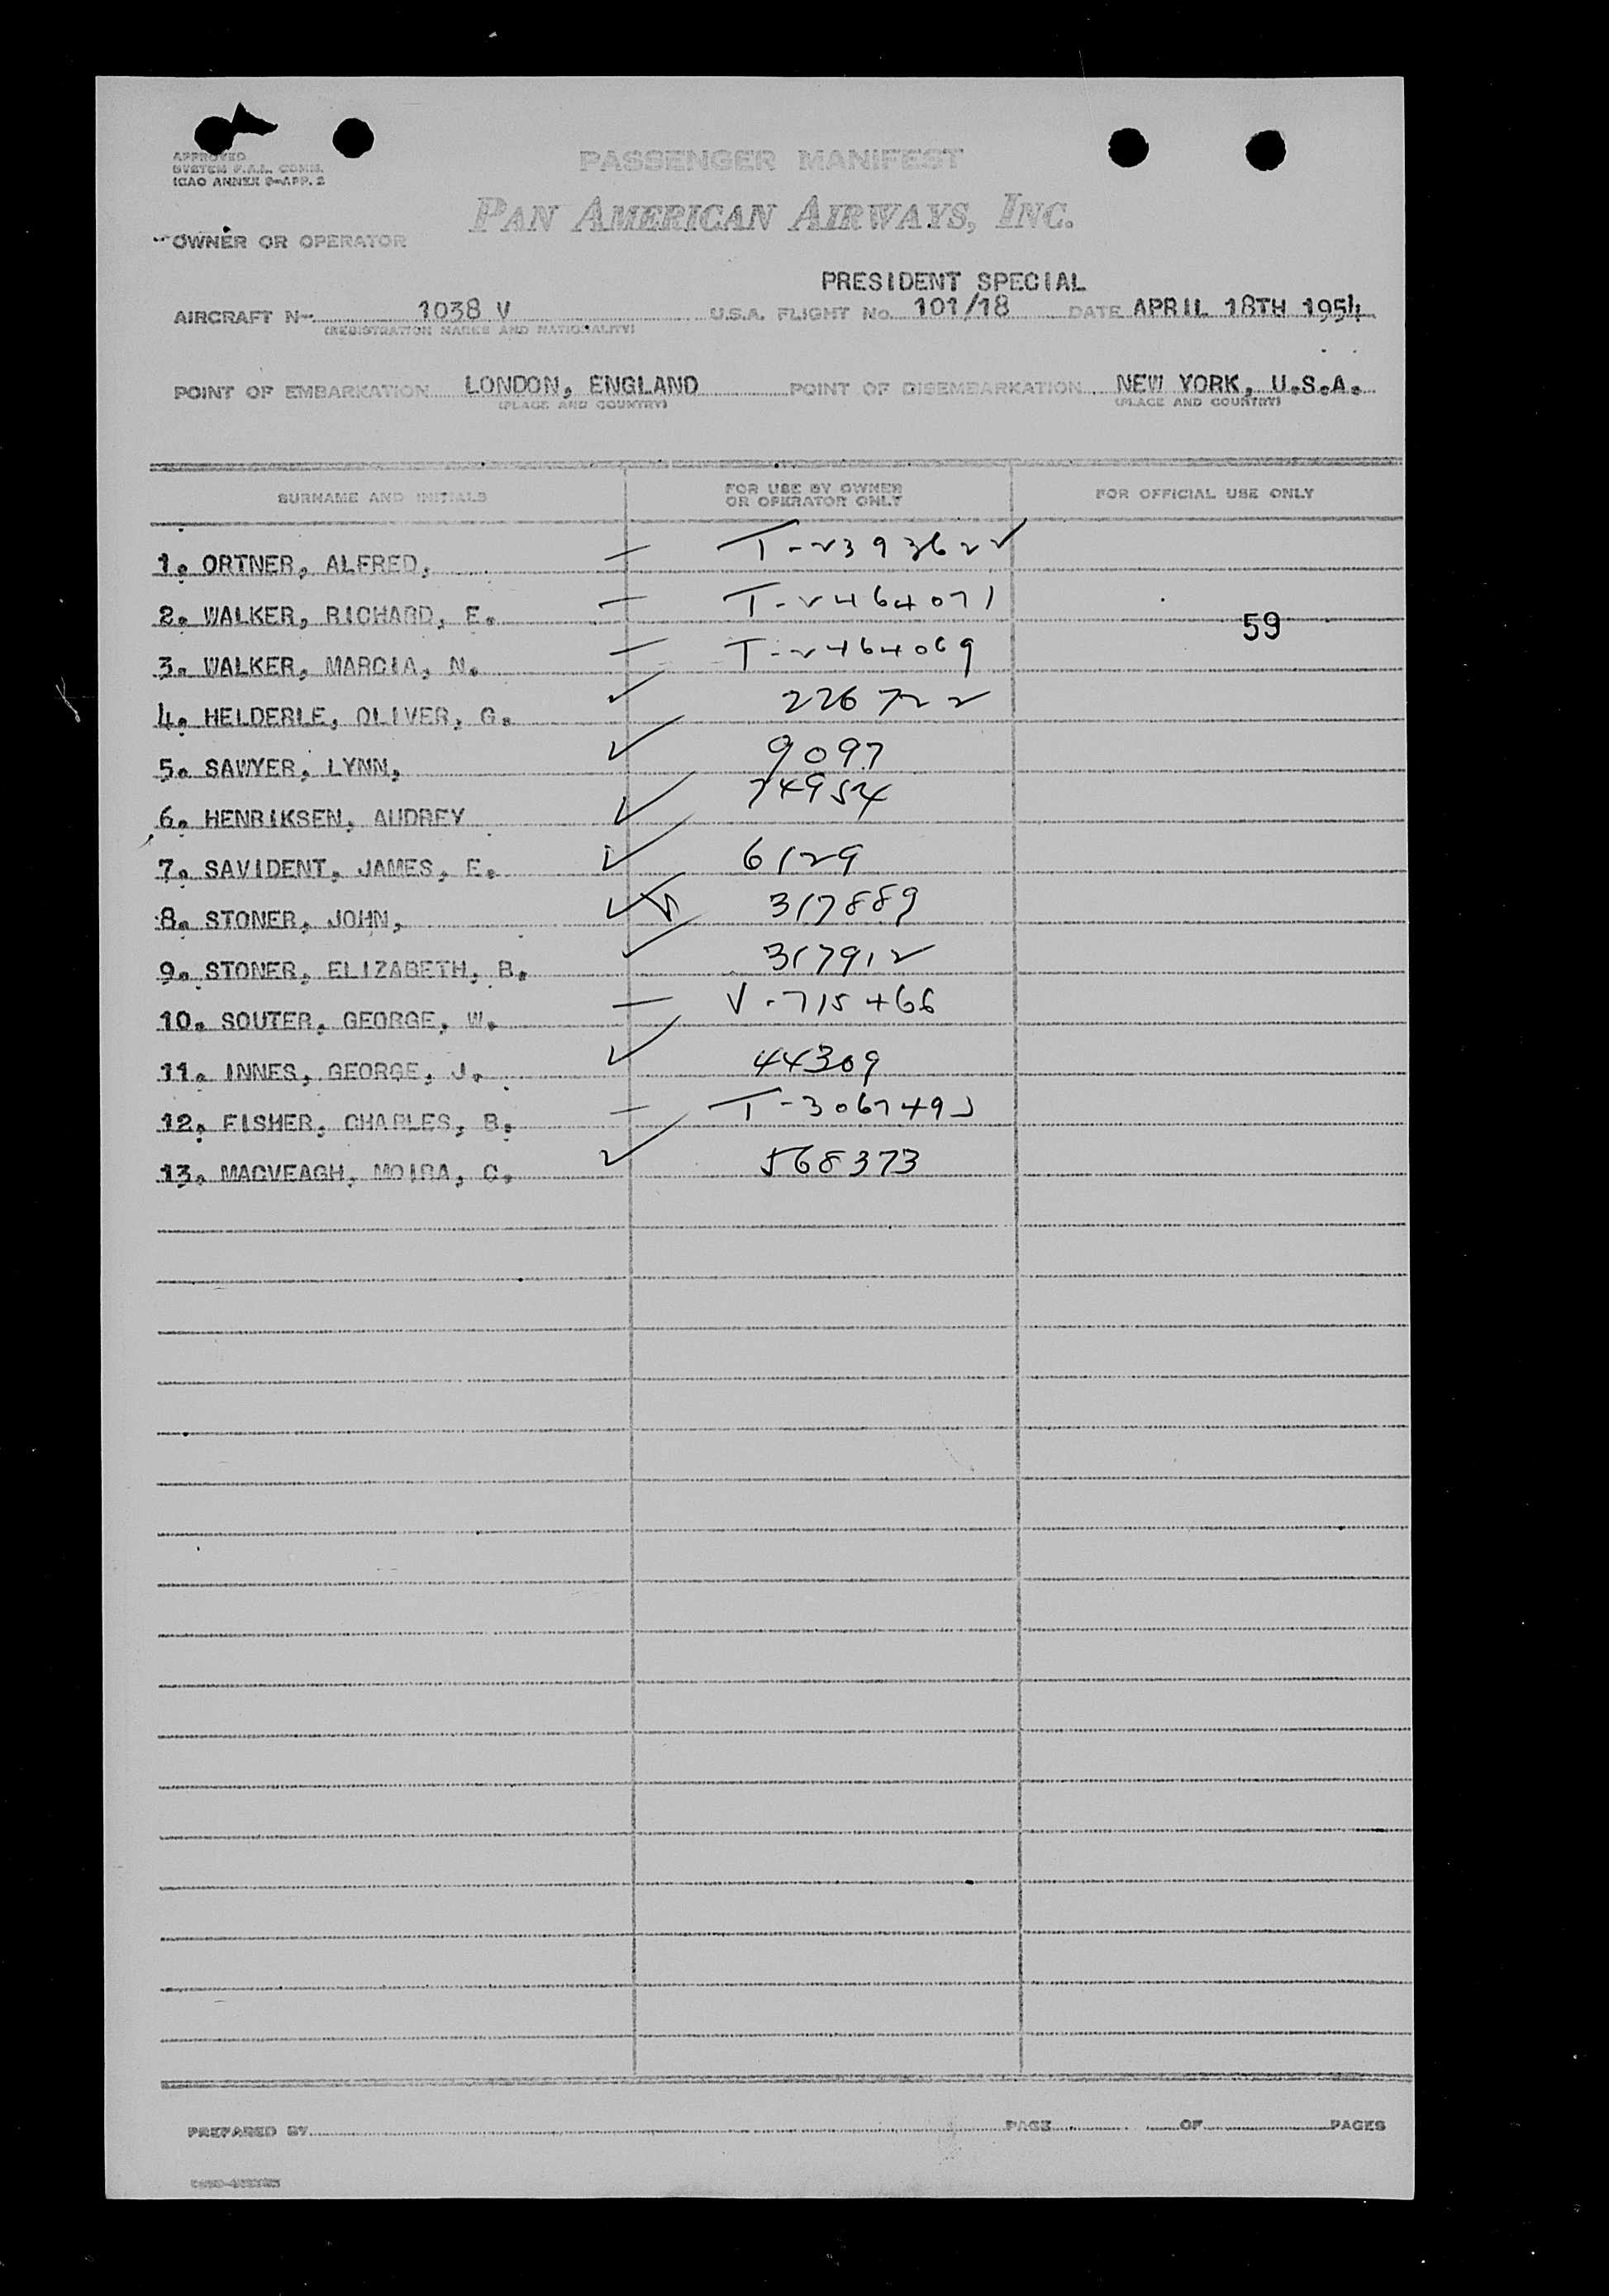 APPROVED
SYSTEM F.A.L. COMM.
ICAO ANNEX 9-APP. 2
PASSENGER MANIFEST
PAN AMERICAN AIRWAYS, INC.
OWNER OR OPERATOR
PRESIDENT SPECIAL
AIRCRAFT N- 1038 V U.S.A. FLIGHT No. 101/18 DATE APRIL 18TH 1954
(REGISTRATION MARKS AND NATIONALITY)
POINT OF EMBARKATION LONDON, ENGLAND POINT OF DISEMBARKATION NEW YORK, U.S.A.
(PLACE AND COUNTRY) (PLACE AND COUNTRY)
SURNAME AND INITIALS FOR USE BY OWNER OR OPERATOR ONLY FOR OFFICIAL USE ONLY
1. ORTNER, ALFRED, — T-2393622
2. WALKER, RICHARD, E. — T-2464071
59
3. WALKER, MARCIA, N. — T-2464069
4. HELDERLE, OLIVER, G. ✓ 226722
5. SAWYER, LYNN, ✓ 9097
6. HENRIKSEN, AUDREY ✓ 74954
7. SAVIDENT, JAMES, E. ✓ 6129
8. STONER, JOHN, ✓ 317889
9. STONER, ELIZABETH, B. ✓ 317912
10. SOUTER, GEORGE, W. — V-715466
11. INNES, GEORGE, J. ✓ 44309
12. FISHER, CHARLES, B. —
13. MACVEAGH, MOIRA, C. ✓ 568373
PREPARED BY PAGE OF PAGES